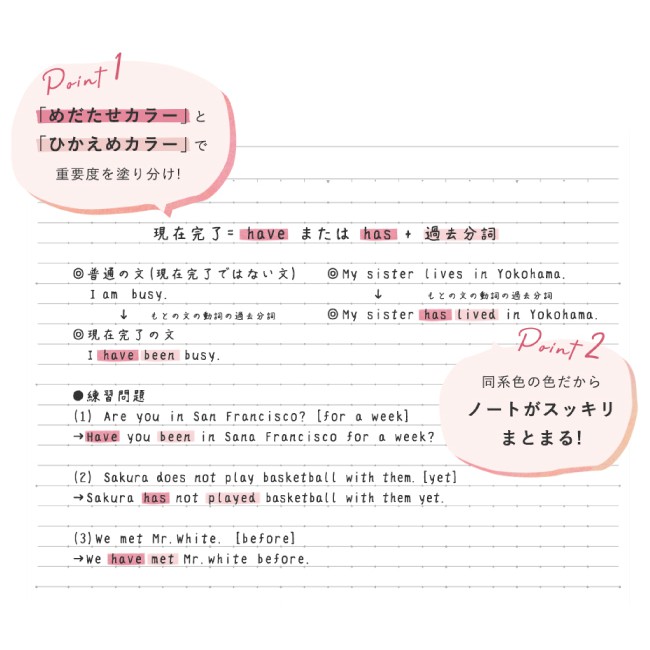 Point 1
「めだたせカラー」と
「ひかえめカラー」で
重要度を塗り分け!
現在完了= have または has + 過去分詞
◎普通の文(現在完了ではない文)
I am busy.
↓ もとの文の動詞の過去分詞
◎現在完了の文
I have been busy.
◎My sister lives in Yokohama.
↓ もとの文の動詞の過去分詞
◎My sister has lived in Yokohama.
Point 2
同系色の色だから
ノートがスッキリ
まとまる!
●練習問題
(1) Are you in San Francisco? [for a week]
→Have you been in Sana Francisco for a week?
(2) Sakura does not play basketball with them. [yet]
→Sakura has not played basketball with them yet.
(3)We met Mr.White. [before]
→We have met Mr.white before.